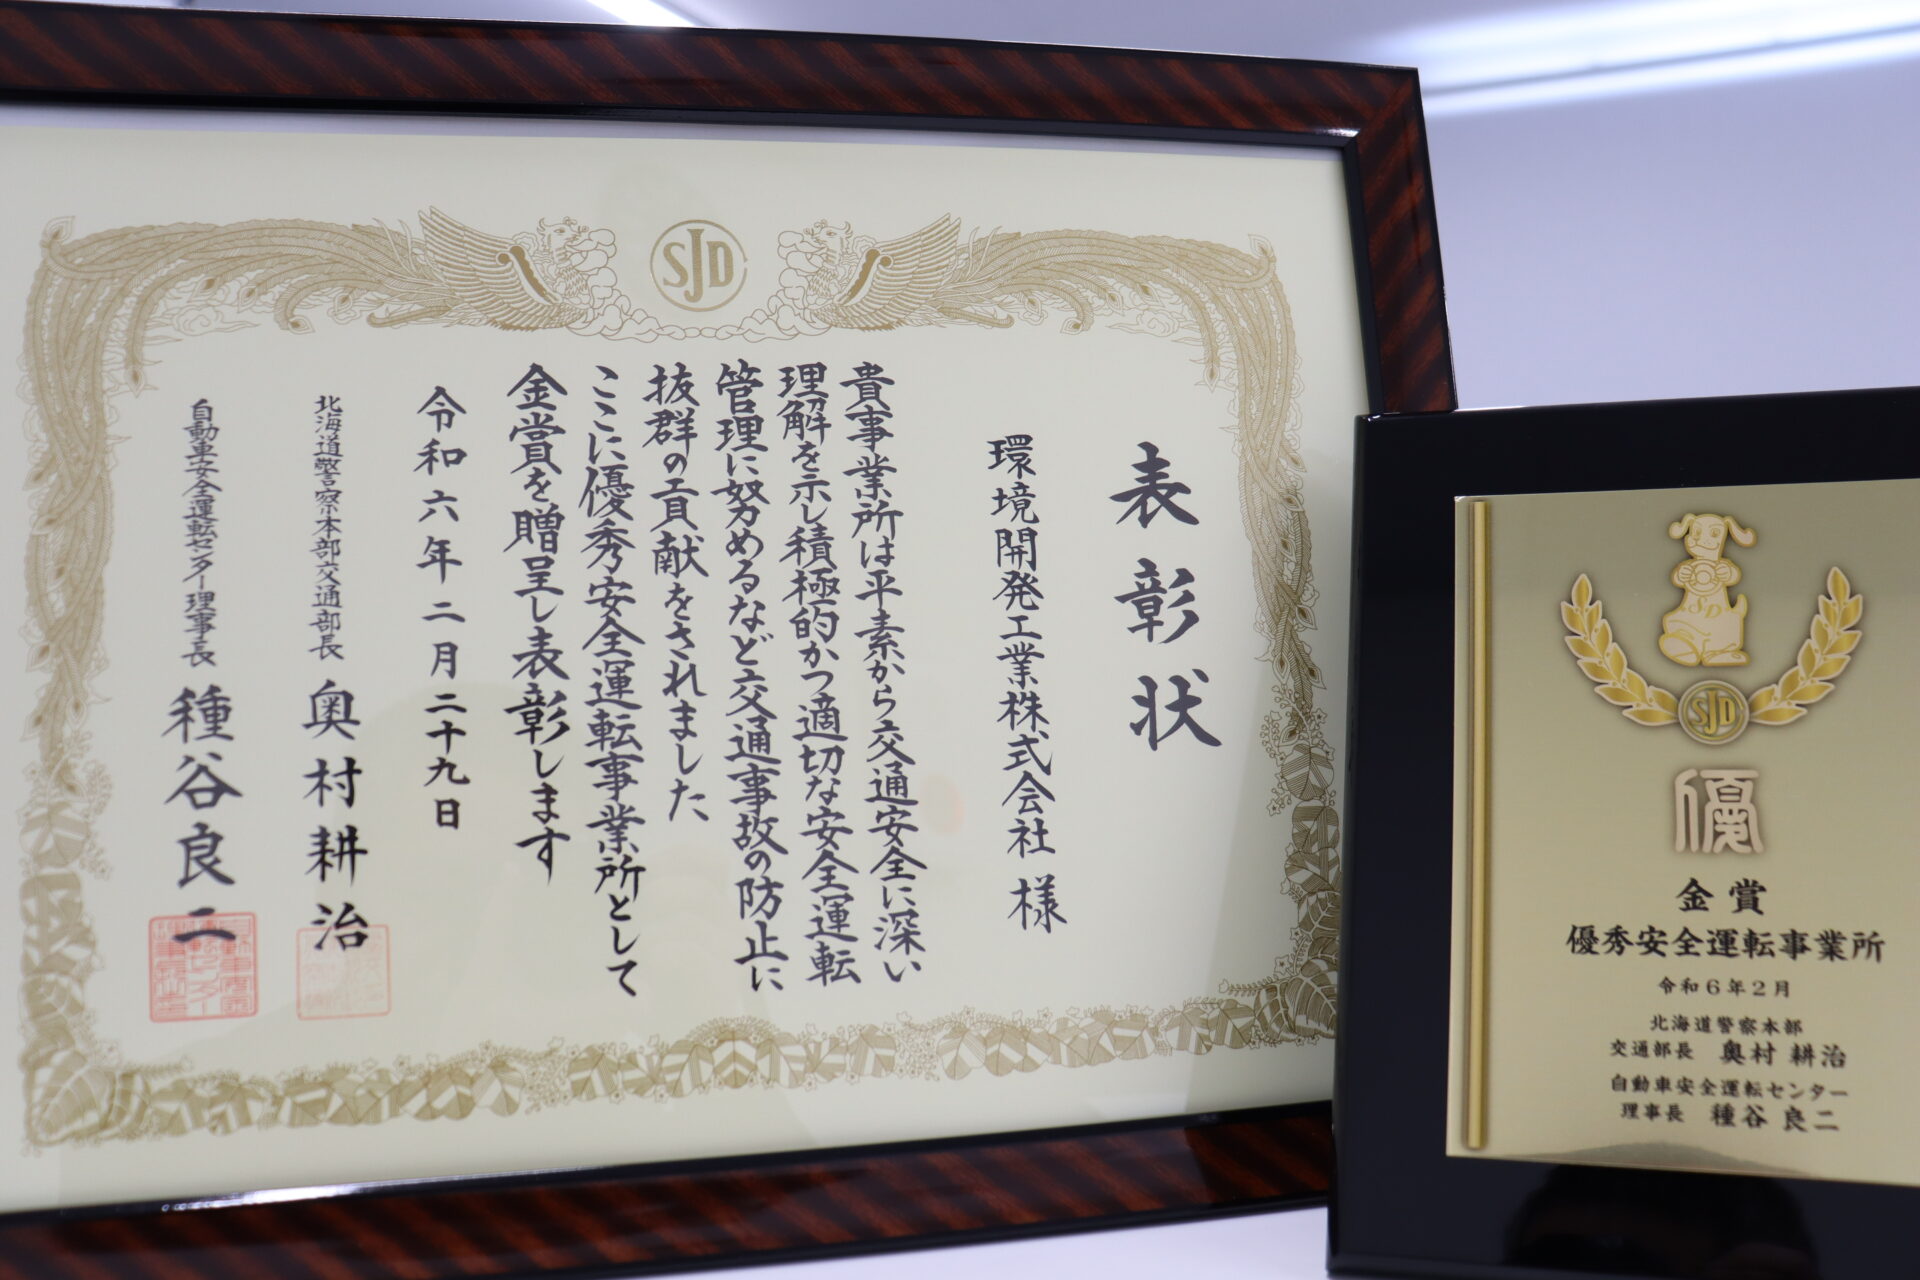 SJD
表彰状
環境開発工業株式会社 様
貴事業所は平素から交通安全に深い
理解を示し積極的かつ適切な安全運転
管理に努めるなど交通事故の防止に
抜群の貢献をされました
ここに優秀安全運転事業所として
金賞を贈呈し表彰します
令和六年二月二十九日
北海道警察本部交通部長 奥村耕治
自動車安全運転センター理事長 種谷良二
SD
SJD
優
金賞
優秀安全運転事業所
令和6年2月
北海道警察本部
交通部長 奥村 耕治
自動車安全運転センター
理事長 種谷 良二